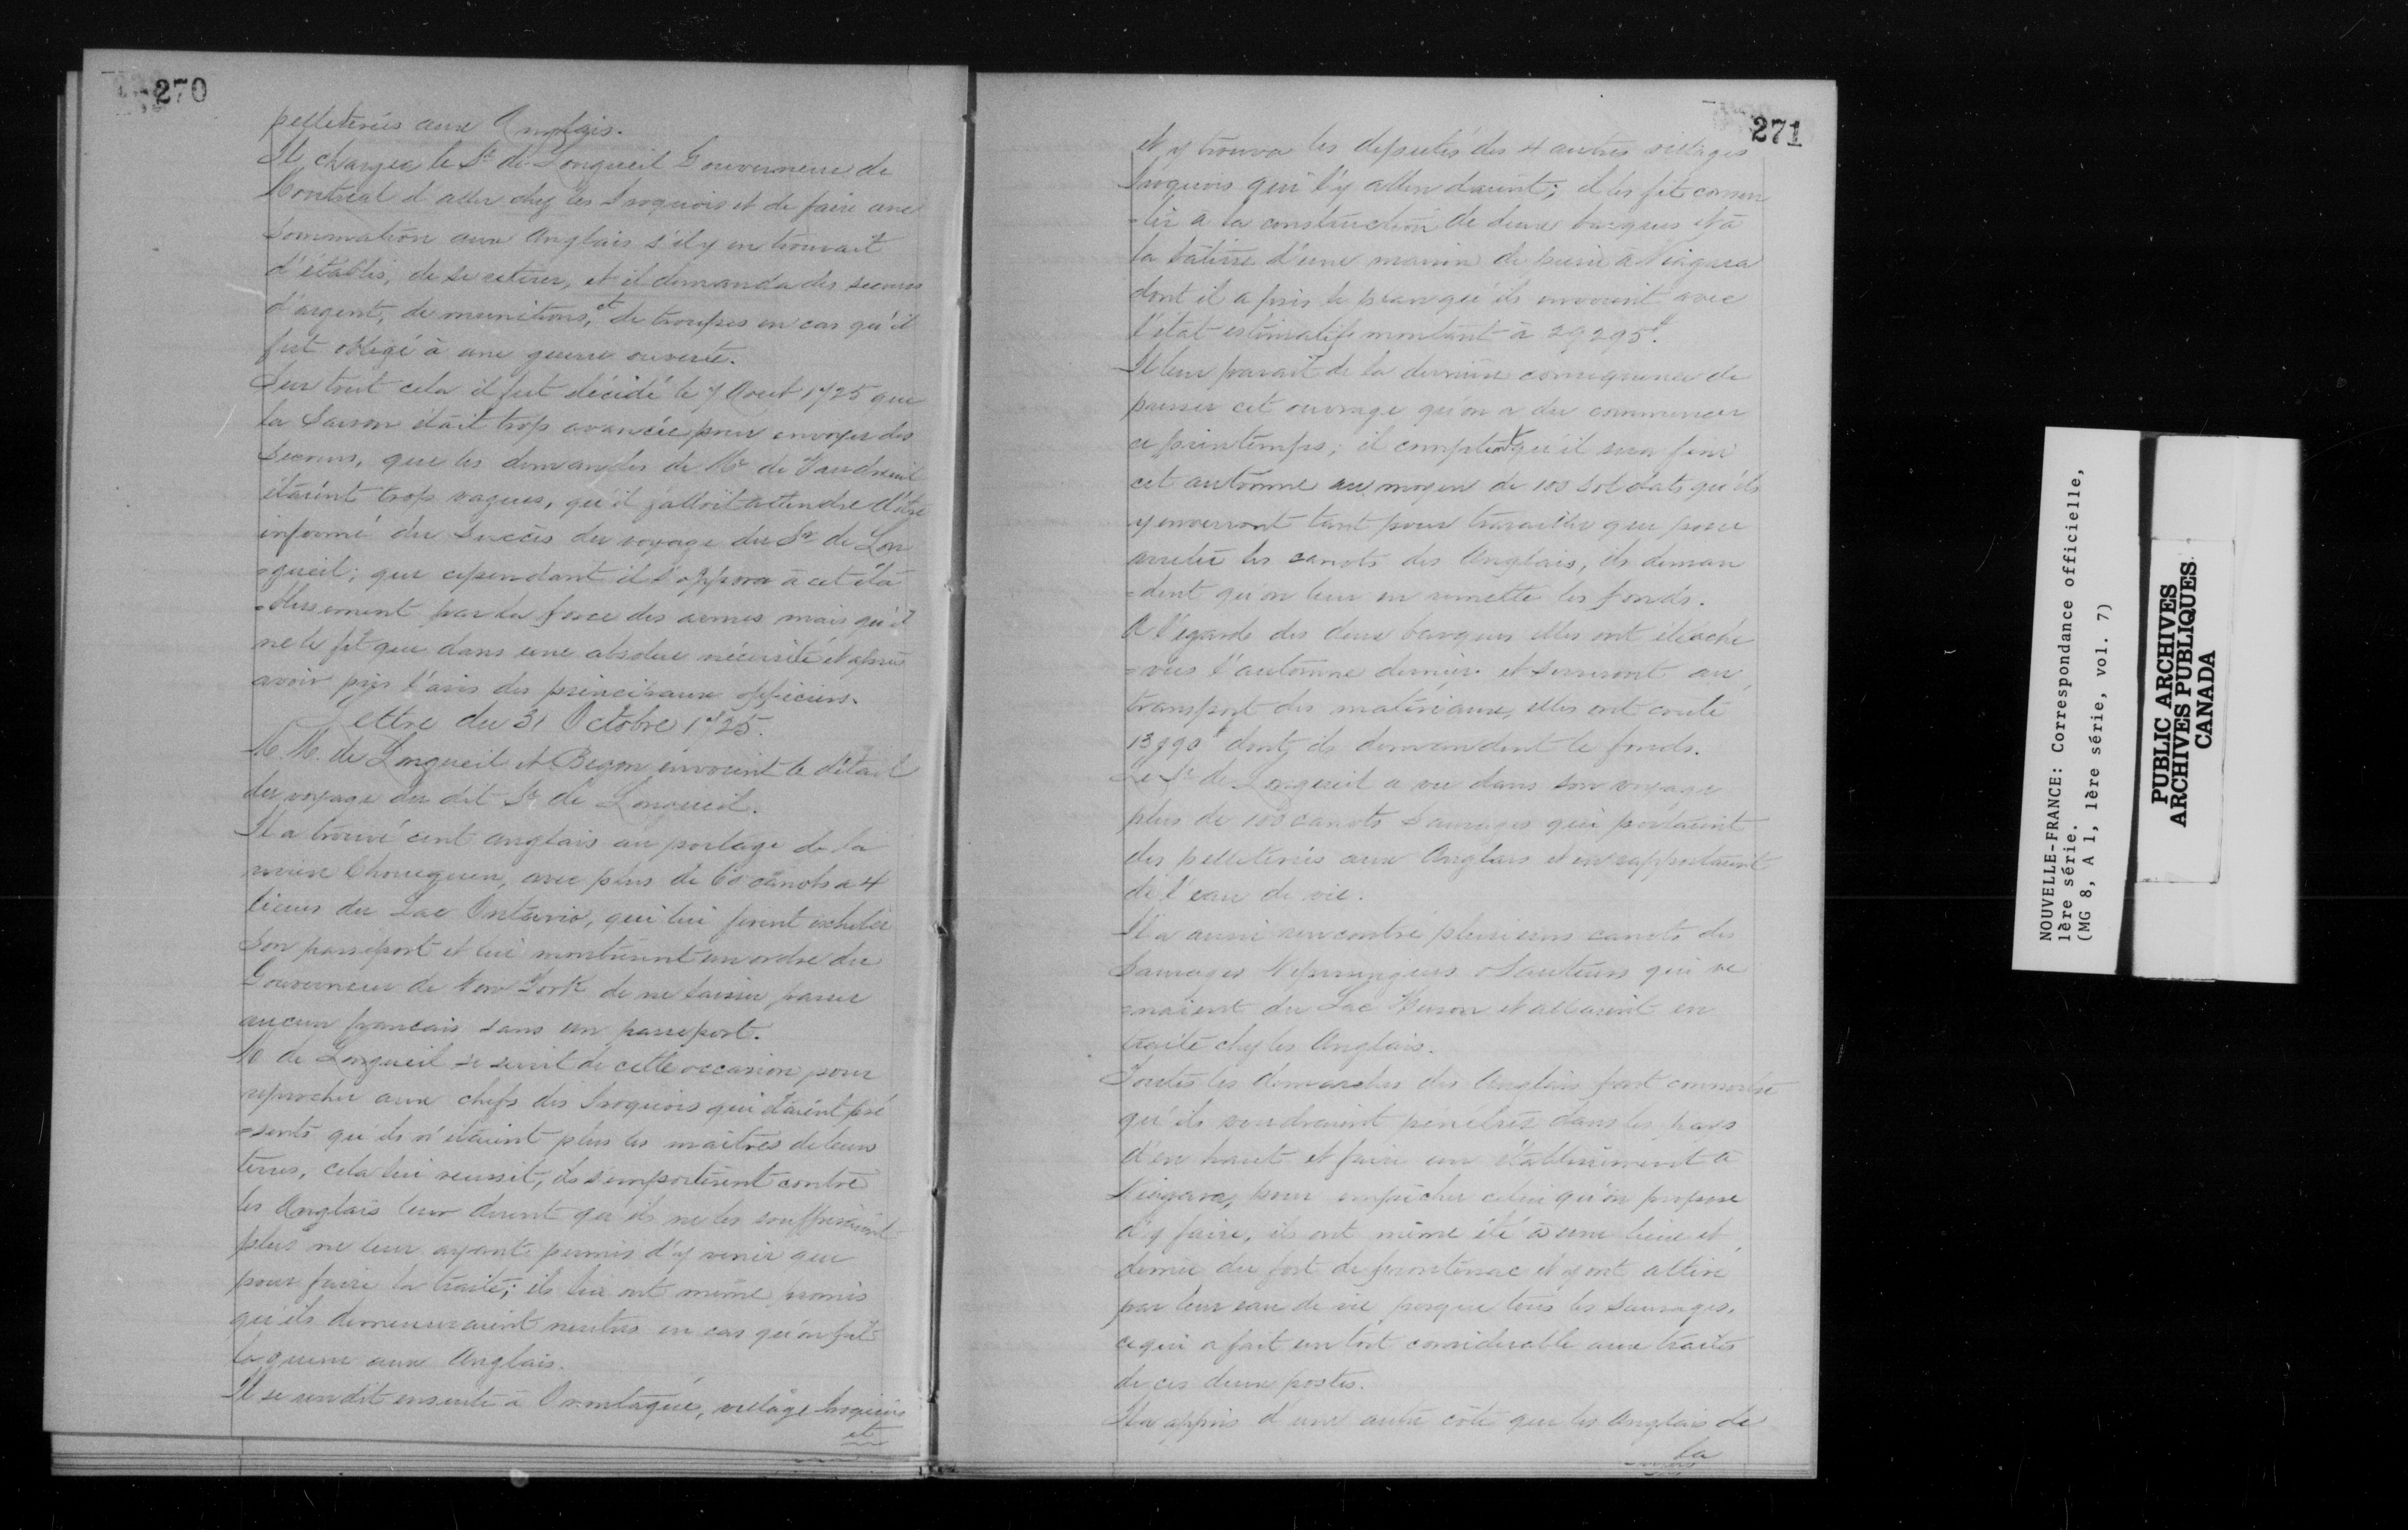 270
pelleteries aux Anglais.
Il chargea le Sr. de Longueil Gouverneur de
Montréal d'aller chez les Iroquois et de faire une
Sommation aux Anglais s'il y en trouvait
d'établis, de se retirer, et il demanda des secours
d'argent, de munitions, et de troupes en cas qu'il
fut obligé à une guerre ouverte.
Sur tout cela il fut décidé le 7 Aout 1725 que
la Saison était trop avancée pour envoyer des
Secours, que les demandes de Mr de Vaudreuil
étaient trop vagues, qu'il falloit attendre d'être
informé du Succès du voyage du Sr de Lon
=gueil; que cependant il s'opposa à cet éta
=blissement par la force des armes mais qu'il
ne le fit que dans une absolue nécessité et après
avoir pris l'avis des principaux officiers.
Lettre du 31 Octobre 1725.
M. M. de Longueil et Begon envoient le détail
du voyage du dit Sr de Longueil.
Il a trouvé cent anglais au portage de la
rivière Choueguen, avec plus de 60 canots a 4
lieues du Lac Ontario, qui lui firent exhiber
Son passeport et lui montrèrent un ordre du
Gouverneur de New York de ne laisser passer
aucun francais sans un passeport.
M de Longueil se servit de cette occasion pour
reprocher aux chefs des Iroquois qui étaient pré
=sents qu'ils n'étaient plus les maîtres de leurs
terres, cela lui reussit, ils s'emportèrent contre
les Anglais leur dirent qu'ils ne les souffriraient
plus ne leur ayant permis d'y venir que
pour faire la traite; ils lui ont même promis
qu'ils demeureraient neutres en cas qu'on fit
la guerre aux Anglais.
Il se rendit ensuite à Onnontagué, village Iroquois
et
271
et y trouva les députés des 4 autres villages
Iroquois qui l'y attendaient; il les fit consen
=tir à la construction de deux barques et à
la bâtisse d'une maison de pierre à Niagara
dont il a pris le plan qu'ils envoient avec
l'état estimatif montant à 29295#.
Il leur parait de la dernière consequence de
presser cet ouvrage qu'on a du commencer
ce printemps; il compte qu'il sera fini
cet automne au moyen de 100 Soldats qu'ils
y enverront tant pour travailler que pour
arreter les canots des Anglais, ils deman
=dent qu'on leur en remette les fonds.
A l'égard des deux barques elles ont été ache
=vées l'automne dernier et serviront au
transport des matériaux, elles ont couté
13990# dont ils demandent le fonds.
Le Sr de Longueil a vu dans son voyage
plus de 100 canots Sauvages qui portaient
des pelleteries aux Anglais et en rapportaient
de l'eau de vie.
Il a aussi rencontré plusieurs canots des
Sauvages Nepissingues Sauteurs qui ve
=naient du Lac Huron et allaient en
traite chez les Anglais.
Toutes les demarches des Anglais font connoitre
qu'ils voudraient pénétrer dans les pays
d'en haut et faire un établissement à
Niagara, pour empêcher celui qu'on propose
d'y faire, ils ont même été à une lieue et
demie du fort de frontenac et y ont attiré
par leur eau de vie presque tous les Sauvages,
ce qui a fait un tort considerable aux traites
de ces deux postes.
Il a appris d'une autre côté que les Anglais de
la
NOUVELLE-FRANCE: Correspondance officielle,
1ère série.
(MG 8, A 1, 1ère série, vol. 7)
PUBLIC ARCHIVES
ARCHIVES PUBLIQUES
CANADA